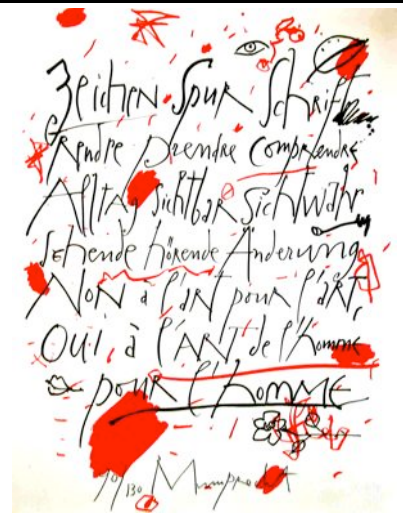 Zeichen Spur Schrift
Rendre prendre comprendre
Alltag sichtbar sichtwahr
Sehende hörende Änderung
Non à l'art pour l'art,
Oui, à l'ART de l'homme
pour l'homme
/130 Mumprecht